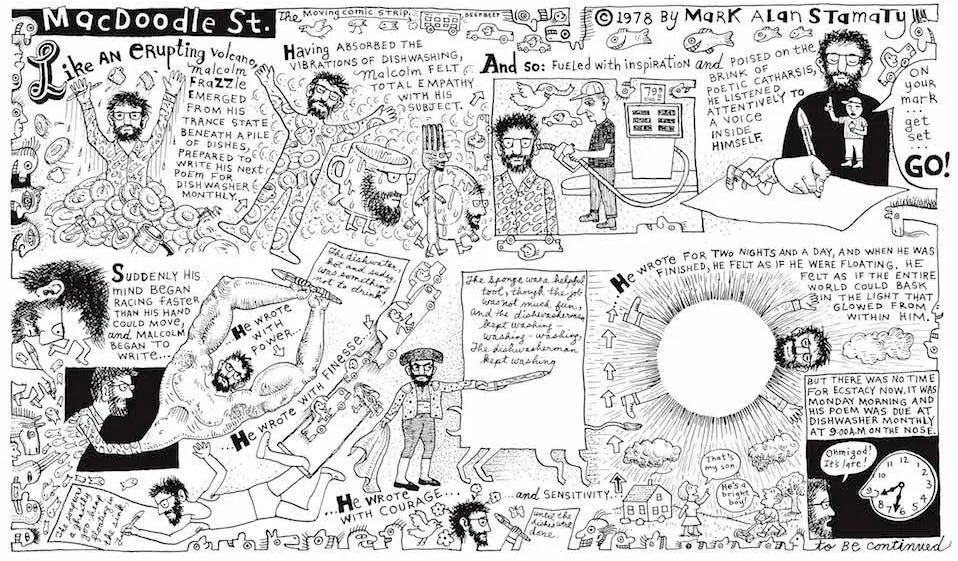 MacDoodle St.
The Moving comic strip.
BEEP BEEP
© 1978 By Mark Alan Stamaty
Like an erupting volcano,
Malcolm
Frazzle
EMERGED
FROM HIS
TRANCE STATE
BENEATH A PILE
OF DISHES,
PREPARED TO
WRITE HIS NEXT
POEM FOR
DISHWASHER
MONTHLY.
Having ABSORBED THE
VIBRATIONS OF DISHWASHING,
MALCOLM FELT
TOTAL EMPATHY
WITH HIS
SUBJECT.
And so: FUELED WITH INSPIRATION and POISED ON THE
BRINK OF
POETIC CATHARSIS,
HE LISTENED
ATTENTIVELY TO
A VOICE
INSIDE
HIMSELF.
ON
your
mark
get
set
...
GO!
SUDDENLY HIS
MIND BEGAN
RACING FASTER
THAN HIS HAND
COULD MOVE,
and MALCOLM
BEGAN TO
WRITE...
...He WROTE
WITH
POWER...
The dishwater,
hot and sudsy,
was nothing
...He WROTE WITH FINESSE...
The Sponge was a helpful
tool, though the job
was not much fun,
And the dishwasherman
kept washing —
washing — washing,
The dishwasherman
kept washing
...He WROTE
WITH COURAGE...
...and SENSITIVITY...!!
Until the
dishes were
done.
...He WROTE FOR TWO NIGHTS AND A DAY, AND WHEN HE WAS
FINISHED, HE FELT AS IF HE WERE FLOATING, HE
FELT AS IF THE ENTIRE
WORLD COULD BASK
IN THE LIGHT THAT
GLOWED FROM
WITHIN HIM.
That's
my son.
He's a
bright
boy!
BUT THERE WAS NO TIME
FOR ECSTACY NOW. IT WAS
MONDAY MORNING AND
HIS POEM WAS DUE AT
DISHWASHER MONTHLY
AT 9:00 A.M. ON THE NOSE.
Ohmigod!
It's late!
to BE continued